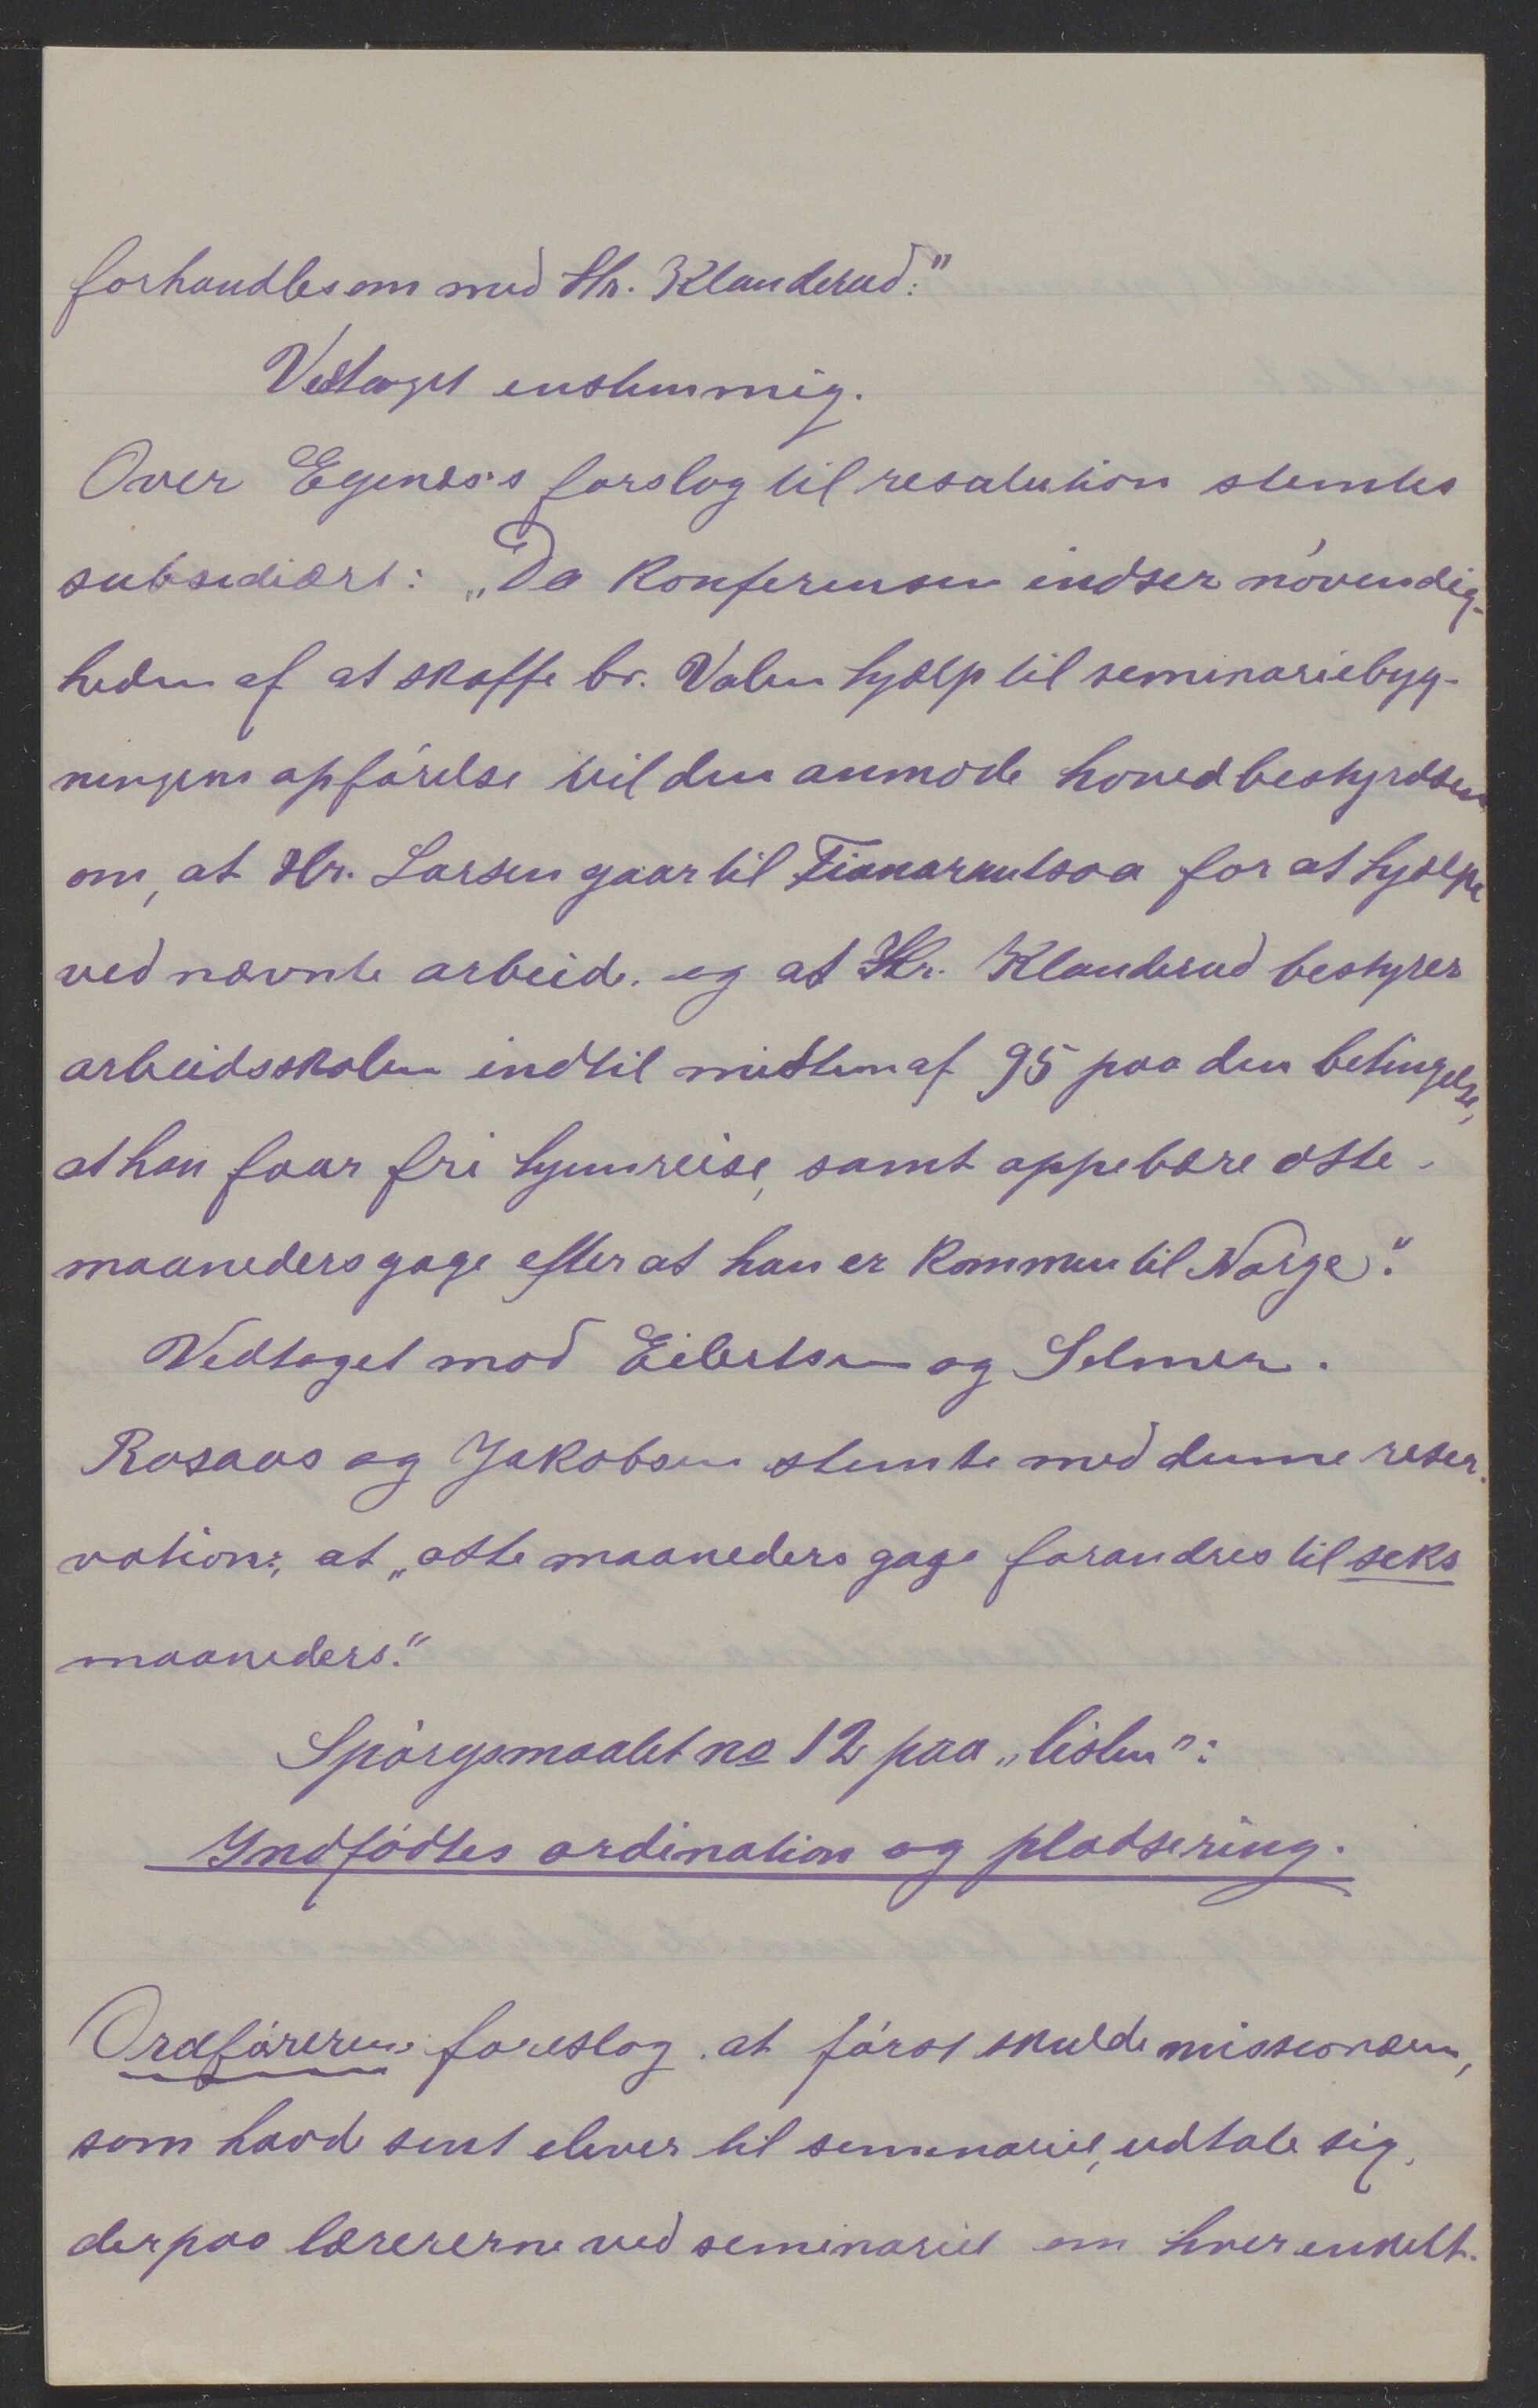 forhandles om med Hr. Klanderud."
Vedtaget enstemmig.
Over Egenæs's forslag til resolution stemtes
subsidiært: „Da konferensen indser nóvendig-
heden af at skaffe br. Valen hjælp til seminariebyg-
ningens opförelse vil den anmode hovedbestyrelsen
om, at Hr. Larsen gaar til Fianarantsoa for at hjælpe
ved nævnte arbeide. og at Hr. Klanderud bestyrer
arbeidsskolen indtil midten af 95 paa den betingelse,
at han faar fri hjemreise, samt oppebære otte
maaneders gage efter at han er kommen til Norge."
Vedtaget mod Eilertsen og Selmer.
Rosaas og Jakobsen stemte med denne reser-
vation:, at „otte maaneders gage forandres til seks
maaneders."
Spörgsmaalet no 12 paa „listen":
Indfödtes ordination og pladsering.
Ordföreren foreslog at först skulde missionæren,
som havde sent elever til seminariet, udtale sig,
derpaa lærererne ved seminariet om hver enkelt.